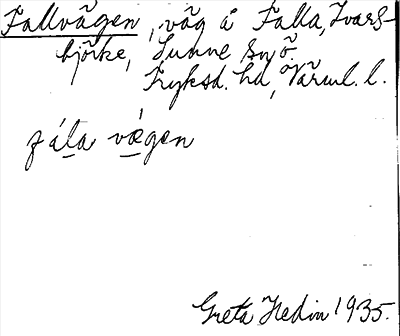 Fallvägen, väg å Falla, Ivars-
björke, Sunne sn, Ö.
Fryksd. hd, Värml. l.
fála vǽgen
Greta Hedin 1935.